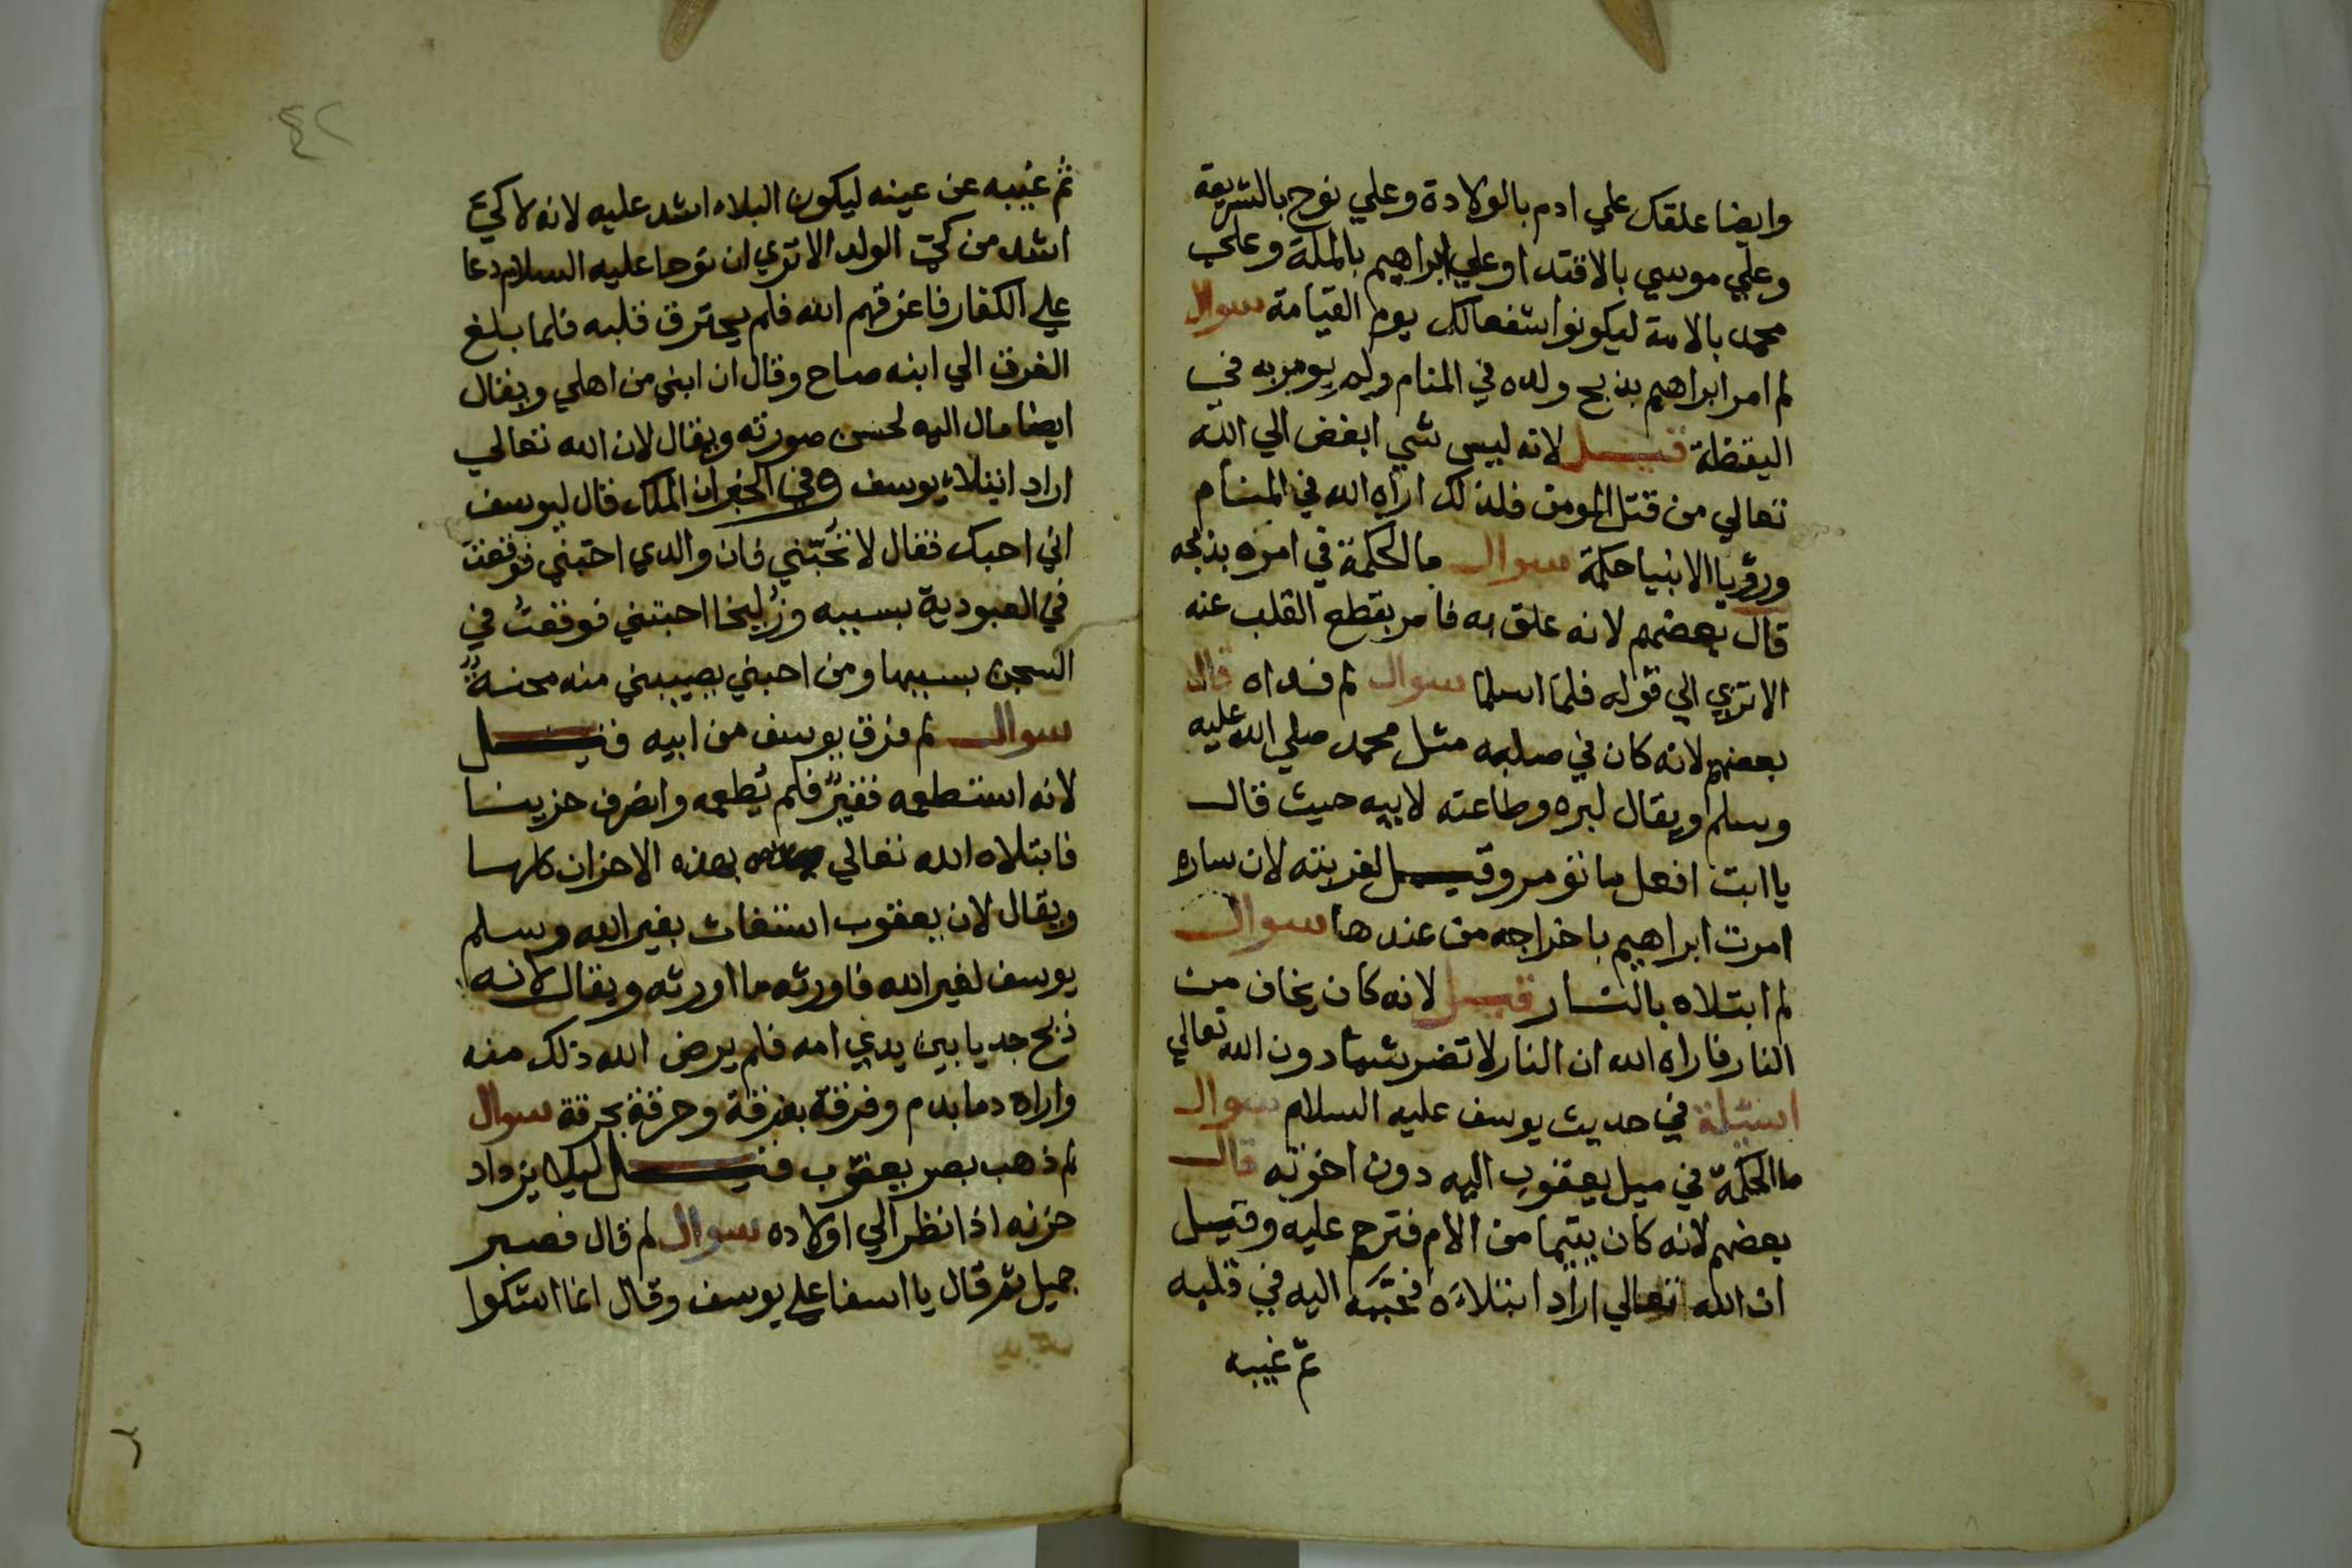 وايضا علقك علي ادم بالولادة وعلي نوح بالشريعة
وعلي موسي بالاقتدا وعلي ابراهيم بالملة وعلي
محمد بالامة ليكونوا شفعا لك يوم القيامة سوال
لم امر ابراهيم بذبح ولده في المنام ولم يومر به في
اليقظة قيل لانه ليس شي ابغض الي الله
تعالي من قتل المومن فلذلك اراه الله في المنام
ورؤيا الانبيا حكمة سوال ما الحكمة في امره بذبحه
قال بعضهم لانه علق به فامر بقطع القلب عنه
الا تري الي قوله فلما اسلما سوال لم فداه قال
بعضهم لانه كان في صلبه مثل محمد صلي الله عليه
وسلم ويقال لبره وطاعته لابيه حيث قال
يا ابت افعل ما تومر وقيل لغربته لان ساره
امرت ابراهيم باخراجه من عندها سوال
لم ابتلاه بالنار قيل لانه كان يخاف من
النار فاراه الله ان النار لا تضر شيئا دون الله تعالي
اسئلة في حديث يوسف عليه السلام سوال
ما الحكمة في ميل يعقوب اليه دون اخوته قال
بعضهم لانه كان يتيما من الام فترحم عليه وقيل
ان الله تعالي اراد ابتلاءه فحببه اليه في قلبه
ثم غيبه
٤٢
ثم غيبه عن عينه ليكون البلاء اشد عليه لانه لا كي
اشد من كي الولد الا تري ان نوحا عليه السلام دعا
علي الكفار فاغرقهم الله فلم يحترق قلبه فلما بلغ
الغرق الي ابنه صاح وقال ان ابني من اهلي ويقال
ايضا مال اليه لحسن صورته ويقال لان الله تعالي
اراد ابتلاء يوسف وفي الخبر ان الملك قال ليوسف
اني احبك فقال لا تحبني فان والدي احبني فوقعت
في العبودية بسببه وزليخا احبتني فوقعت في
السجن بسببها ومن احبني يصيبني منه محنة
سوال لم فرق يوسف من ابيه قيل
لانه استطعمه فقير فلم يطعمه وانصرف حزينا
فابتلاه الله تعالي بهذه الاحزان كلها
ويقال لان يعقوب استغاث بغير الله وسلم
يوسف لغير الله فاورثه ما اورثه ويقال لانه
ذبح جديا بين يدي امه فلم يرض الله ذلك منه
واراه دما بدم وفرقة بفرقة وحرقة بحرقة سوال
لم ذهب بصر يعقوب قيل ليلا يزداد
حزنه اذا نظر الي اولاده سوال لم قال فصبر
جميل ثم قال يا اسفا علي يوسف وقال انما اشكوا